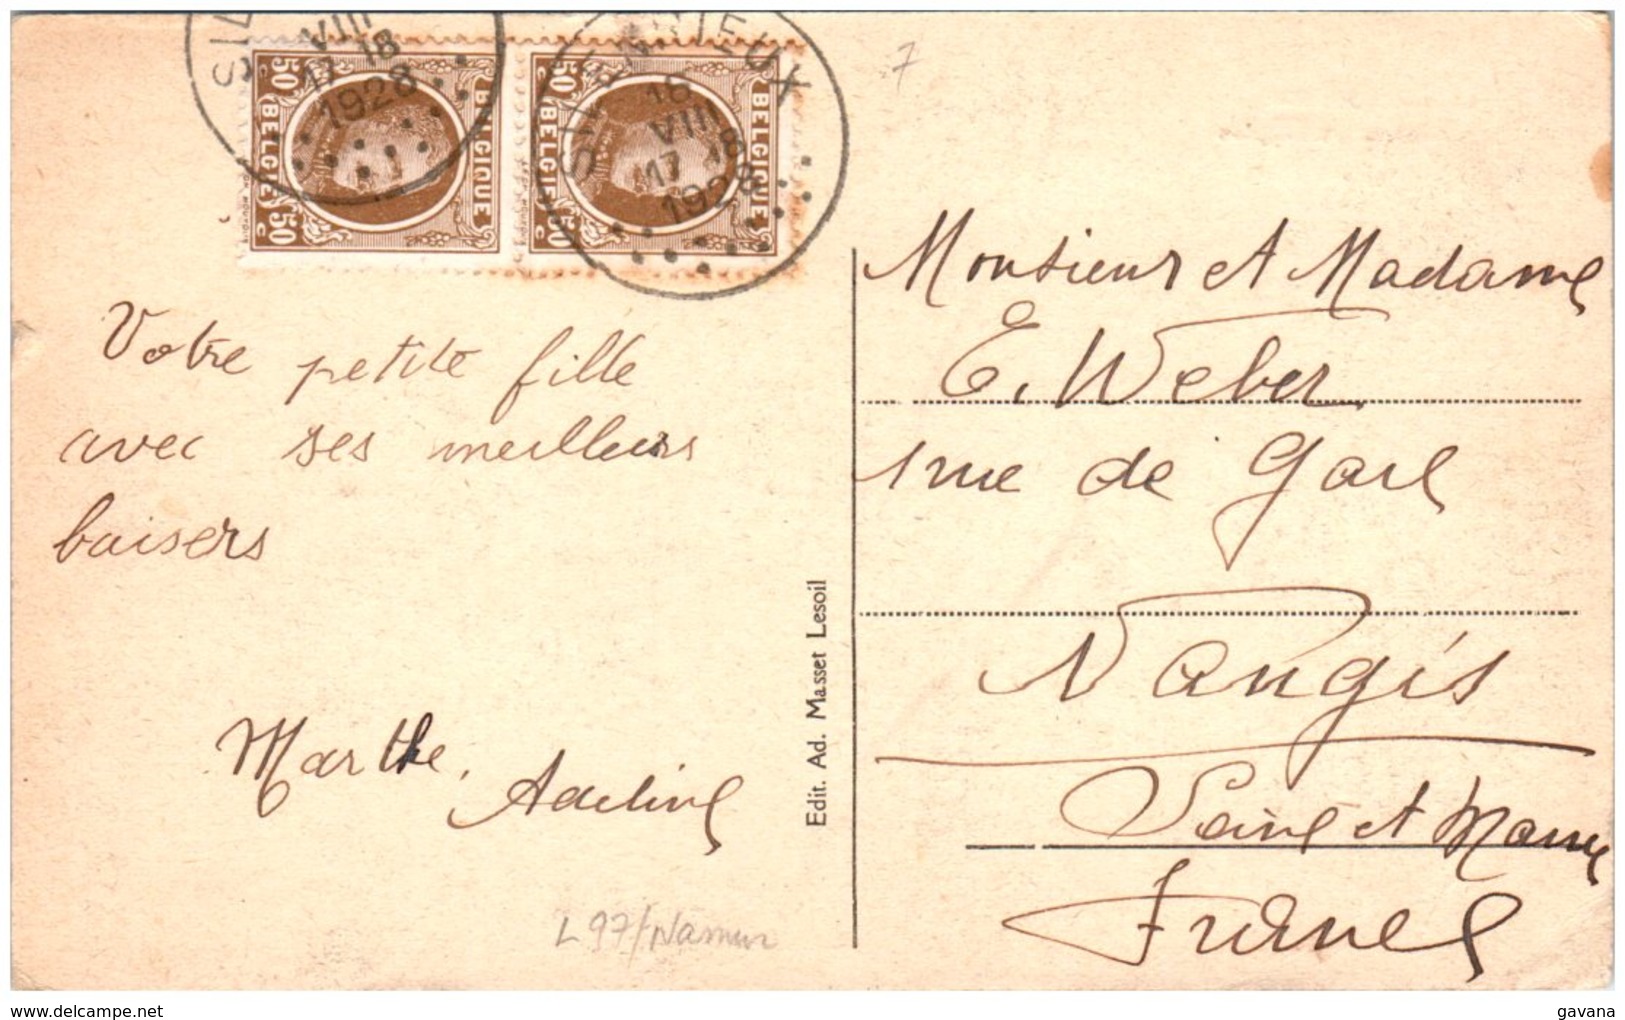 SILENRIEUX
VIII
17-18
1928
SILENRIEUX
18
VIII
17-18
1928
50 C BELGIQUE
BELGIE 50 C
50 C BELGIQUE
BELGIE 50 C
7
Votre petite fille
avec ses meilleurs
baisers
Marthe, Adeline
L97/Namur
Edit. Ad. Masset Lesoil
Monsieur et Madame
E. Weber
rue de Gare
Nangis
Seine et Marne
France
gavana